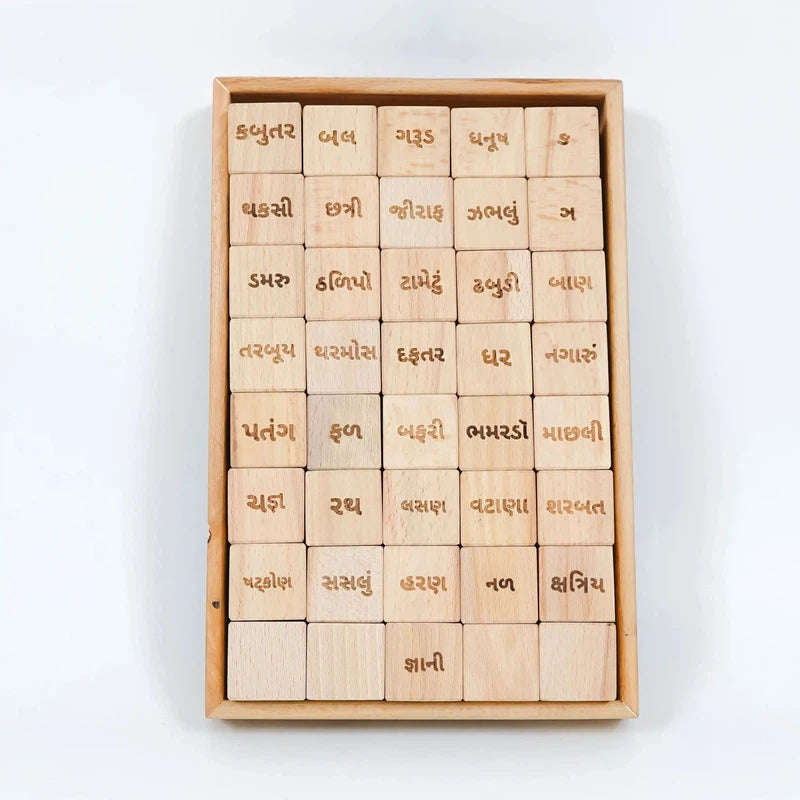 કબુતર બલ ગરૂડ ધનૂષ ક
થકસી છત્રી જીરાફ ઝભલું ઞ
ડમરુ ઠળિપૉ ટામેટું ઢબુડી બાણ
તરબૂય થરમોસ દફતર ધર નગારું
પતંગ ફળ બફરી ભમરડૉ માછલી
ચજ્ઞ રથ લસણ વટાણા શરબત
ષટ્કોણ સસલું હરણ નળ ક્ષત્રિય
જ્ઞાની